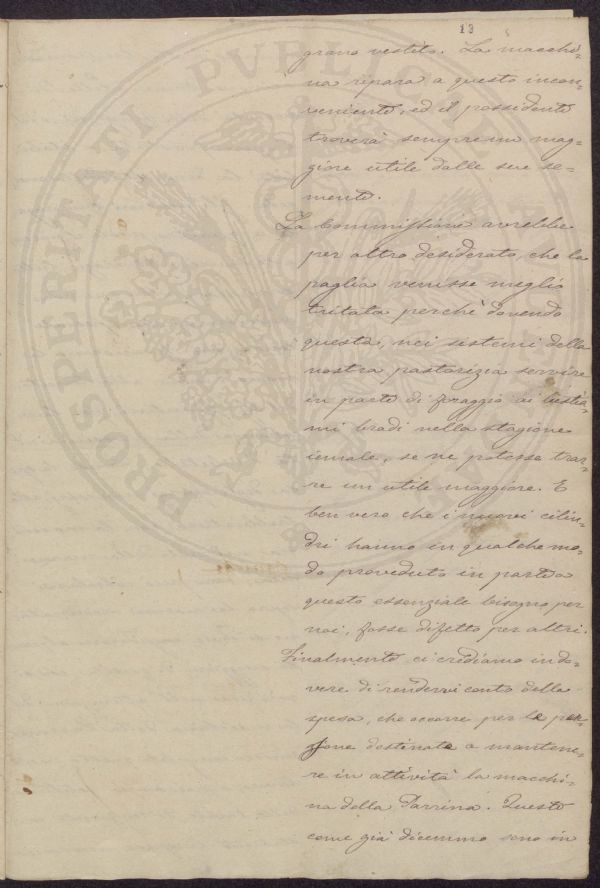 13
grano vestito. La macchi-
na ripara a questo incon-
veniente, ed il possidente
troverà sempre un mag-
giore utile dalle sue se-
mente.
La Commissione avrebbe
per altro desiderato, che la
paglia venisse meglio
tritata perchè dovendo
questa, nei sistemi della
nostra pastorizia servire
in parte di foraggio ai bestia-
mi bradi nella stagione
iemale, se ne potesse trar-
re un utile maggiore. E
ben vero che i nuovi cilin-
dri hanno in qualche mo-
do proveduto in parte a
questo essenziale bisogno per
noi, fosse difetto per altri.
Finalmente ci crediamo in do-
vere di rendervi conto della
spesa, che occorre per le per-
sone destinate a mantene-
re in attività la macchi-
na della Parrina. Queste
come già dicemmo sono in
PROSPERITATI PVBLI